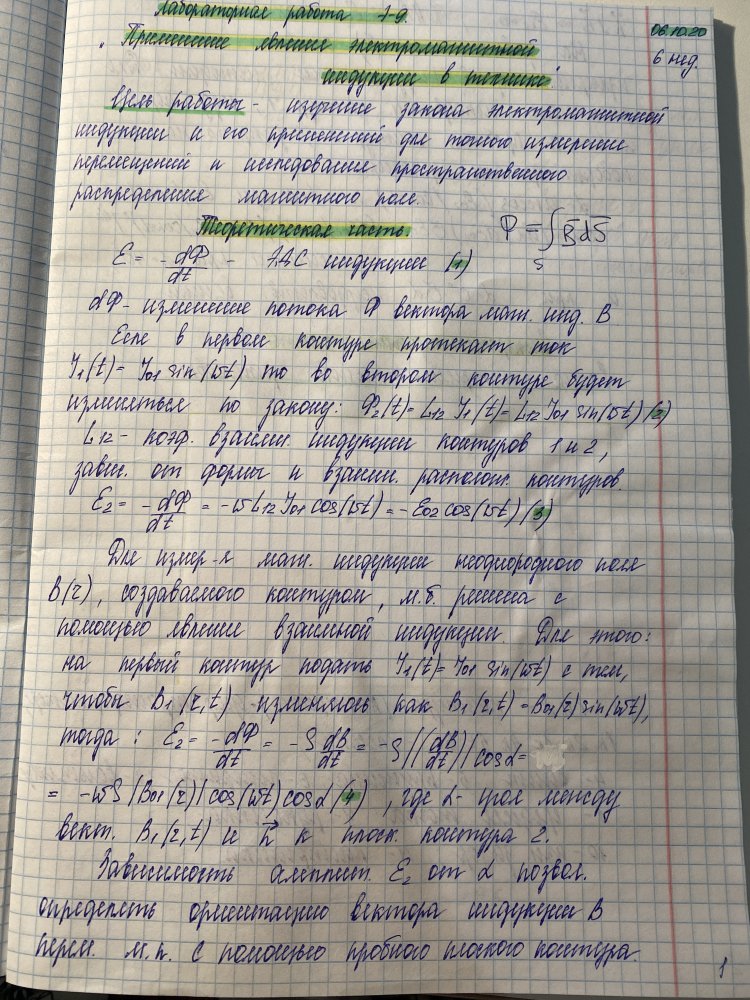 Лабораторная работа 7-9.
06.10.20
6 нед.
"Применение явления электромагнитной
индукции в технике"
Цель работы - изучение закона электромагнитной
индукции и его применений для точного измерения
перемещений и исследования пространственного
распределения магнитного поля.
Теоретическая часть.
Φ = ∫_S B̄dS̄
Ɛ = -dΦ/dt - ЭДС индукции (1)
dΦ - изменение потока Φ вектора маг. инд. B
Если в первом контуре протекает ток
J₁(t) = J₀₁ sin(ωt) то во втором контуре будет
изменяться по закону: Φ₂(t) = L₁₂ J₁(t) = L₁₂ J₀₁ sin(ωt) (2)
L₁₂ - коэф. взаимн индукции контуров 1 и 2,
завис. от формы и взаимн. располож. контуров.
Ɛ₂ = -dΦ/dt = -ωL₁₂ J₀₁ cos(ωt) = -Ɛ₀₂ cos(ωt) (3)
Для измер-я маг. индукции неоднородного поля
B(r), создаваемого контуром, м.б. решена с
помощью явления взаимной индукции. Для этого:
на первый контур подать J₁(t) = J₀₁ sin(ωt) с тем,
чтобы B₁(r,t) изменялось как B₁(r,t) = B₀₁(r) sin(ωt),
тогда: Ɛ₂ = -dΦ/dt = -S dB/dt = -S |(dB/dt)| cos α =
= -ωS |B₀₁(r)| cos(ωt) cos α (4), где α - угол между
вект. B₁(r,t) и n⃗ к плоск. контура 2.
Зависимость амплит. Ɛ₂ от α позвол.
определять ориентацию вектора индукции B
перем. м.п. с помощью пробного плоского контура.
1